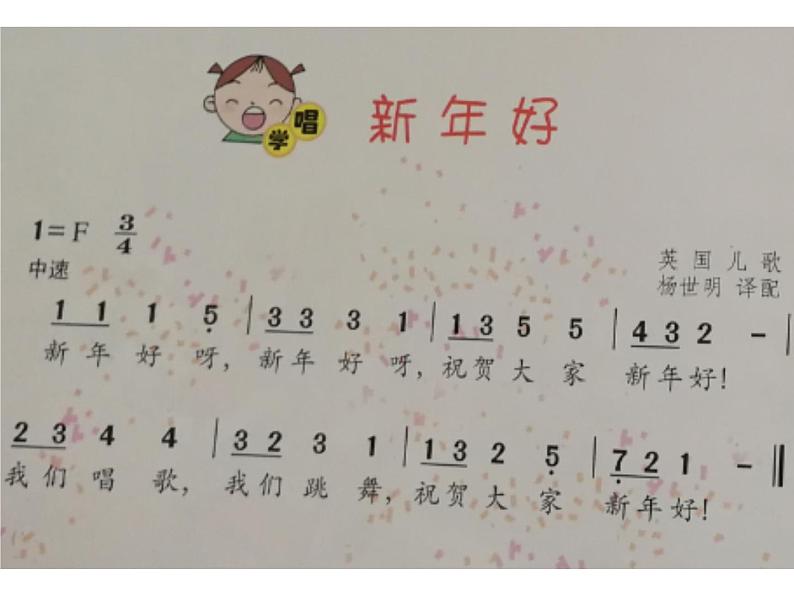 学唱
新年好
1=F 3/4
中速
英国儿歌
杨世明 译配
1 1 1 5̣ | 3 3 3 1 | 1 3 5 5 | 4 3 2 - |
新年好呀, 新年好呀, 祝贺大家 新年好!
2 3 4 4 | 3 2 3 1 | 1 3 2 5̣ | 7̣ 2 1 - ‖
我们唱歌, 我们跳舞, 祝贺大家 新年好!